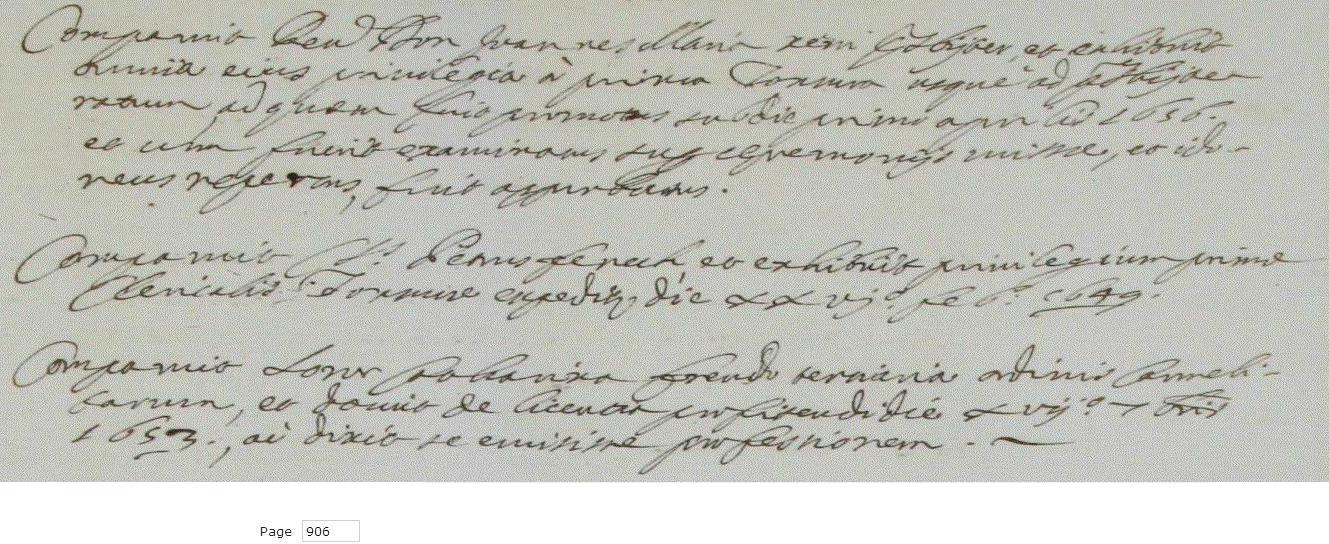 Comparuit Rev Don Joannes Maria xeri et exhibuit
omnia eius privilegia à prima Tonsura usque ad
ratum ad quem fuit promotus sub die primo aprilis 1656.
et cum fuerit examinatus sup ceremonijs misse, et ido-
neus repertus, fuit approbatus.
Comparuit Petrus ferech et exhibuit privilegium prime
Clericalis Tonsure expedit die xxvij feb 1649.
Comparuit frendo terciaria ordinis Carmeli-
tarum, et docuit de licentia profitendi die xvij 7bris
1653., ac dixit se emisisse professionem.
Page 906